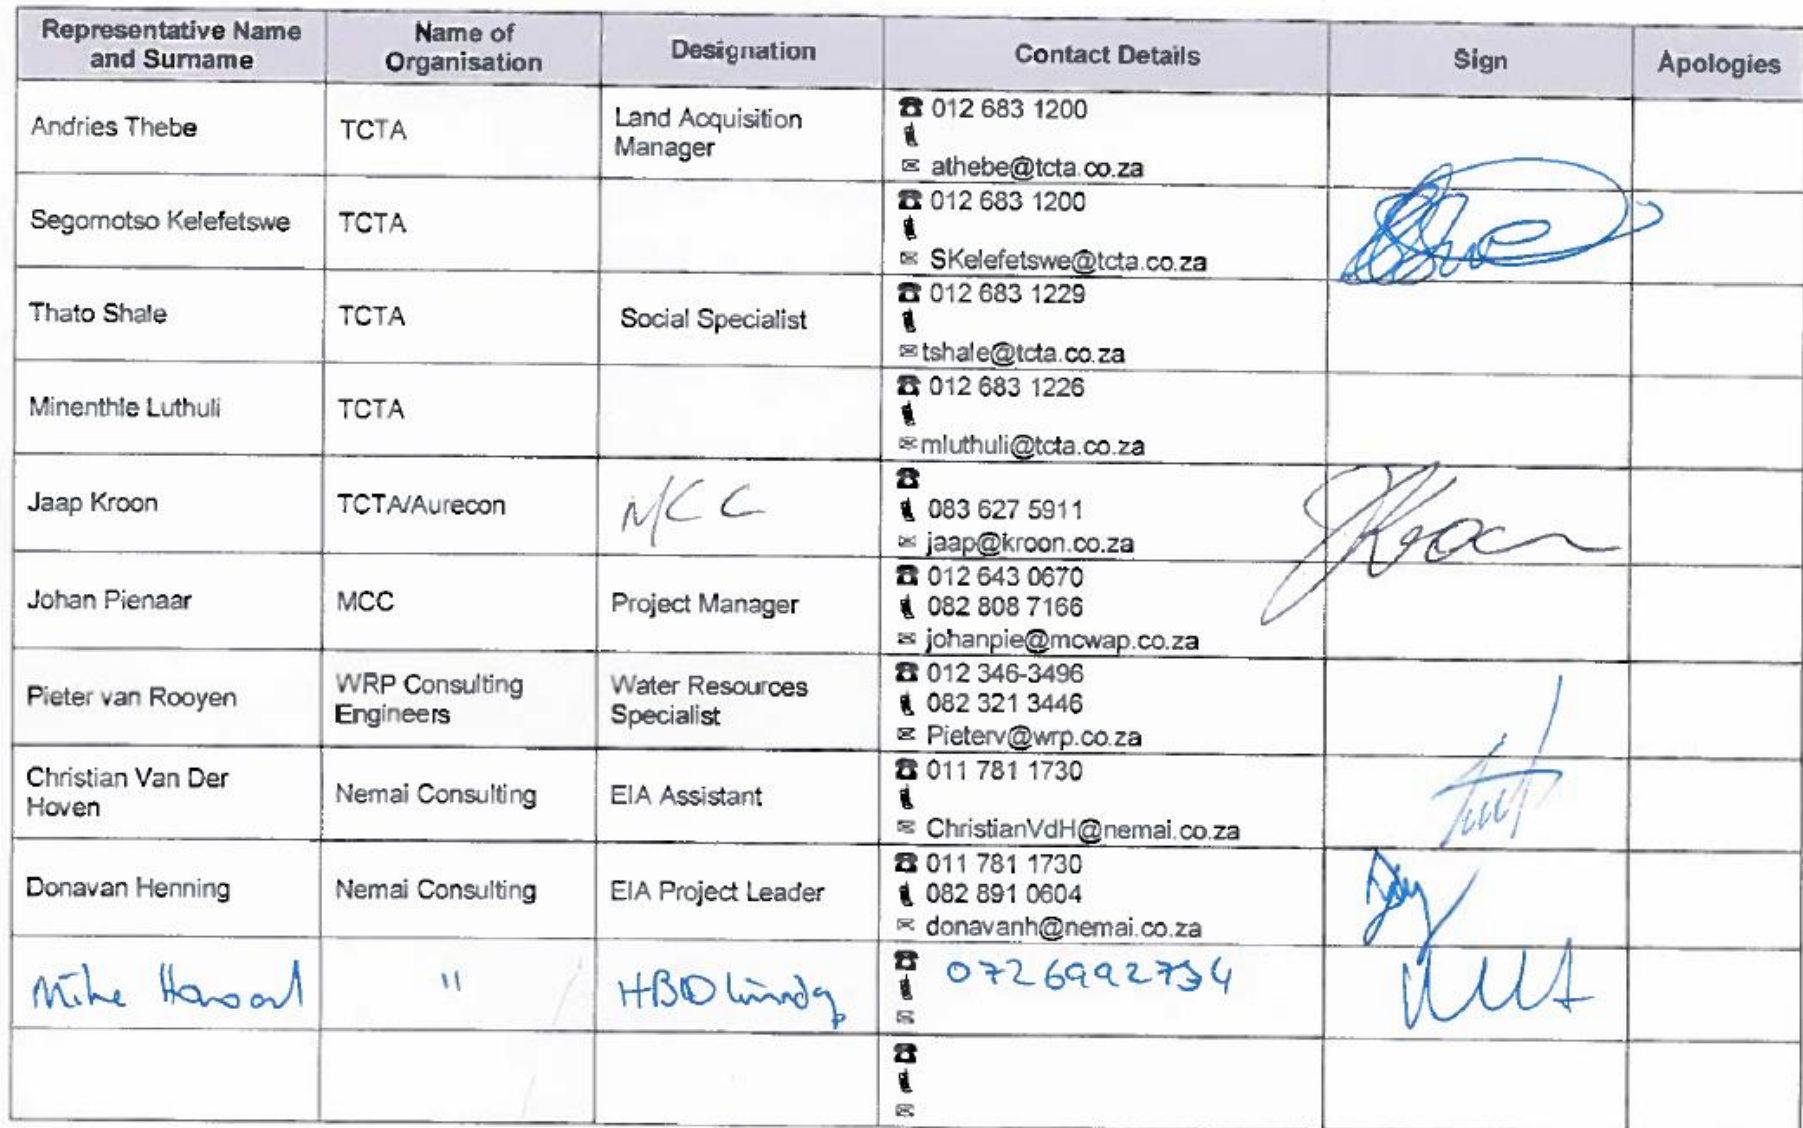 Representative Name
and Surname
Name of
Organisation
Designation
Contact Details
Sign
Apologies
Andries Thebe
TCTA
Land Acquisition
Manager
012 683 1200
athebe@tcta.co.za
Segomotso Kelefetswe
TCTA
012 683 1200
SKelefetswe@tcta.co.za
Thato Shale
TCTA
Social Specialist
012 683 1229
tshale@tcta.co.za
Minenthle Luthuli
TCTA
012 683 1226
mluthuli@tcta.co.za
Jaap Kroon
TCTA/Aurecon
MCC
083 627 5911
jaap@kroon.co.za
JKroon
Johan Pienaar
MCC
Project Manager
012 643 0670
082 808 7166
johanpie@mcwap.co.za
Pieter van Rooyen
WRP Consulting
Engineers
Water Resources
Specialist
012 346-3496
082 321 3446
Pieterv@wrp.co.za
Christian Van Der
Hoven
Nemai Consulting
EIA Assistant
011 781 1730
ChristianVdH@nemai.co.za
Donavan Henning
Nemai Consulting
EIA Project Leader
011 781 1730
082 891 0604
donavanh@nemai.co.za
Mike
"
0726992734